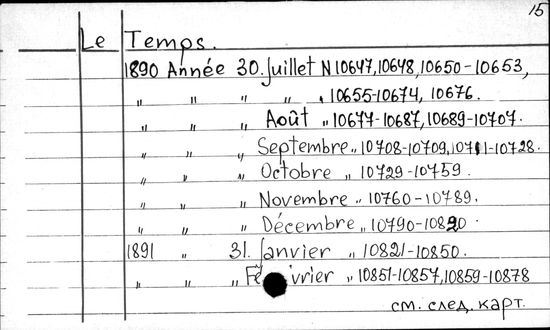 15
Le Temps.
1890 Année 30. Juillet N 10647, 10648, 10650-10653,
" " " " " 10655-10674, 10676.
" " " Août " 10677-10687, 10689-10707.
" " " Septembre " 10708-10709, 10711-10728.
" " " Octobre " 10729-10759.
" " " Novembre " 10760-10789.
" " " Décembre " 10790-10820.
1891 " 31. Janvier " 10821-10850.
" " " Février " 10851-10857, 10859-10878
см. след. карт.